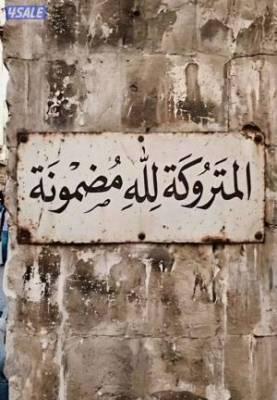 4SALE
المَتَروُكَة لِلّهِ مُضمُونَة